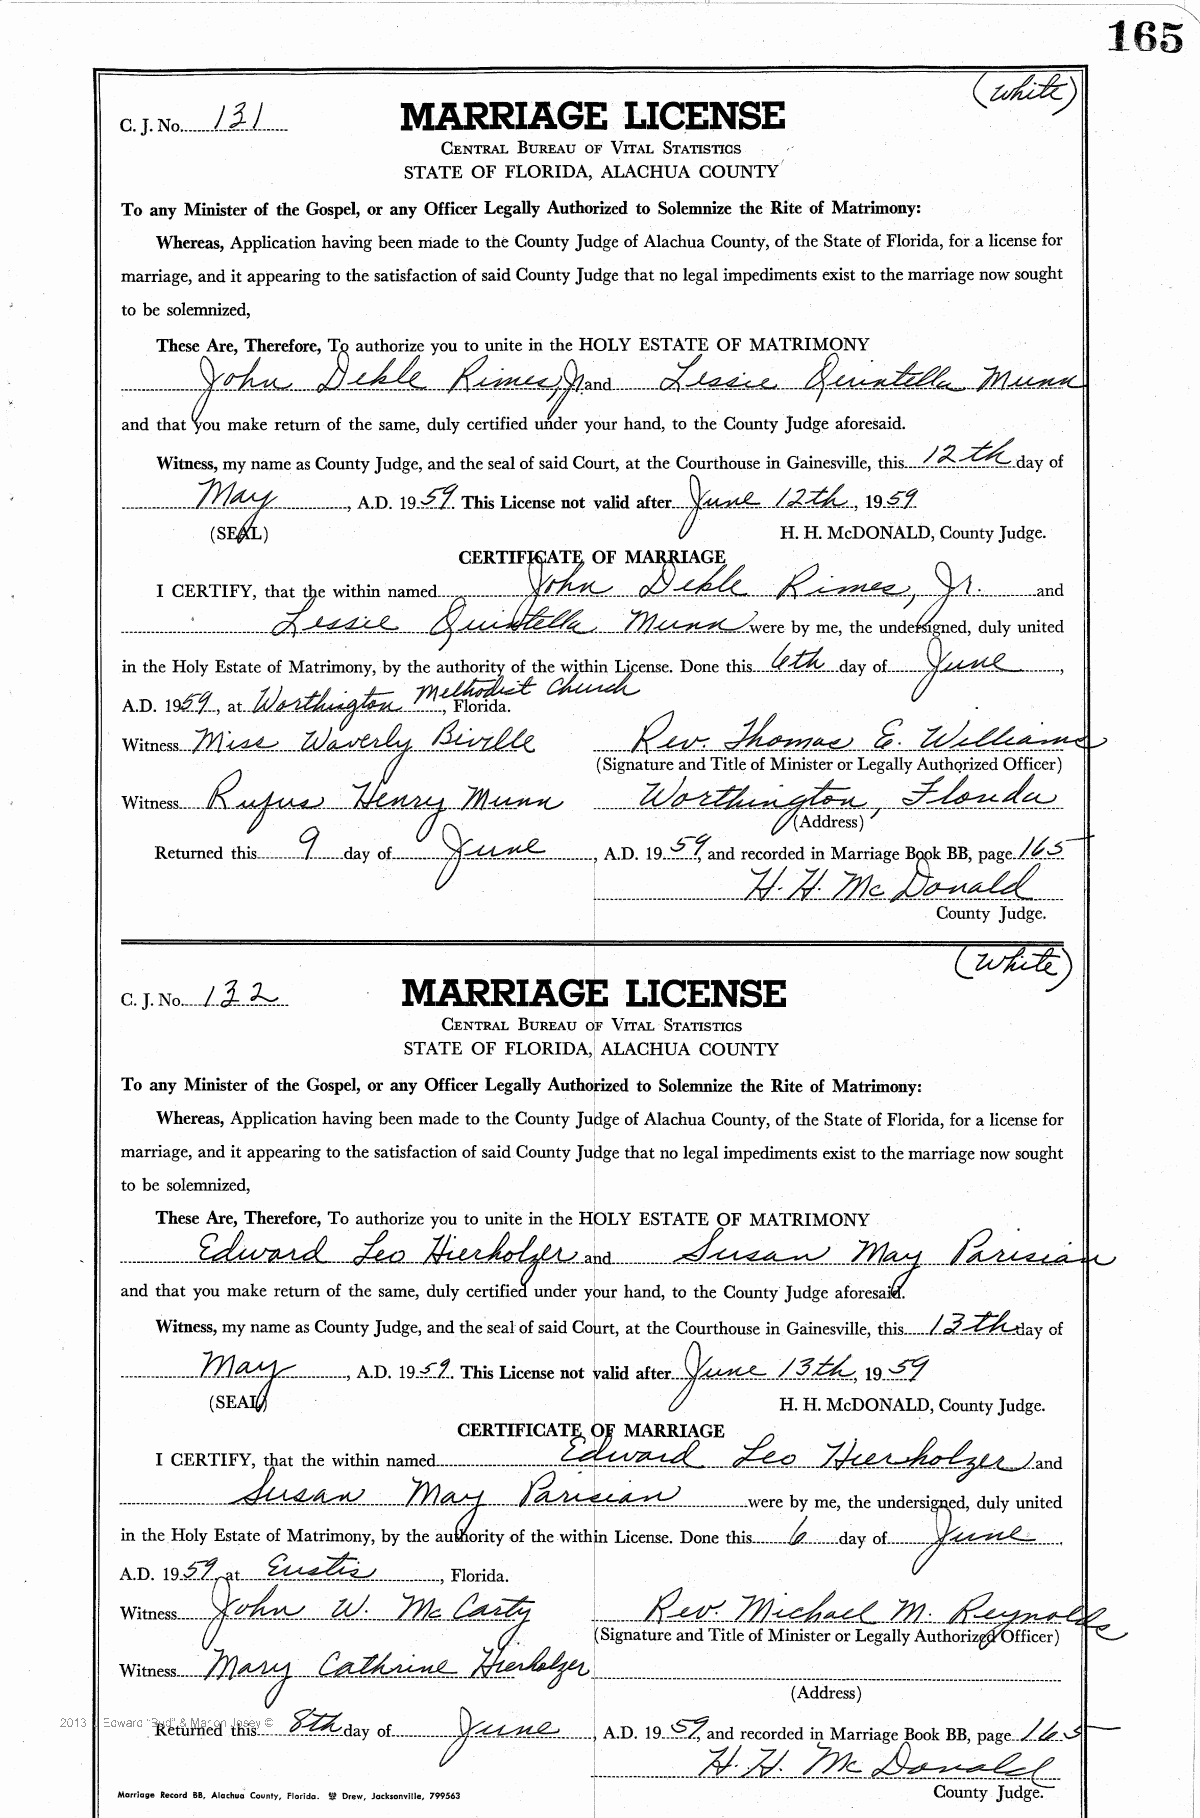 165
(White)
C. J. No. 131
MARRIAGE LICENSE
CENTRAL BUREAU OF VITAL STATISTICS
STATE OF FLORIDA, ALACHUA COUNTY
To any Minister of the Gospel, or any Officer Legally Authorized to Solemnize the Rite of Matrimony:
Whereas, Application having been made to the County Judge of Alachua County, of the State of Florida, for a license for
marriage, and it appearing to the satisfaction of said County Judge that no legal impediments exist to the marriage now sought
to be solemnized,
These Are, Therefore, To authorize you to unite in the HOLY ESTATE OF MATRIMONY
John Dekle Rimes, Jr. and Lessie Quintella Munn
and that you make return of the same, duly certified under your hand, to the County Judge aforesaid.
Witness, my name as County Judge, and the seal of said Court, at the Courthouse in Gainesville, this 12th day of
May, A.D. 1959. This License not valid after June 12th, 1959
(SEAL) H. H. McDONALD, County Judge.
CERTIFICATE OF MARRIAGE
I CERTIFY, that the within named John Dekle Rimes, Jr. and
Lessie Quintella Munn were by me, the undersigned, duly united
in the Holy Estate of Matrimony, by the authority of the within License. Done this 6th day of June,
A.D. 1959, at Worthington Methodist Church, Florida.
Witness Miss Waverly Biville Rev. Thomas E. Williams
(Signature and Title of Minister or Legally Authorized Officer)
Witness Rufus Henry Munn Worthington, Florida
(Address)
Returned this 9 day of June, A.D. 1959, and recorded in Marriage Book BB, page 165
H. H. McDonald
County Judge.
(White)
C. J. No. 132
MARRIAGE LICENSE
CENTRAL BUREAU OF VITAL STATISTICS
STATE OF FLORIDA, ALACHUA COUNTY
To any Minister of the Gospel, or any Officer Legally Authorized to Solemnize the Rite of Matrimony:
Whereas, Application having been made to the County Judge of Alachua County, of the State of Florida, for a license for
marriage, and it appearing to the satisfaction of said County Judge that no legal impediments exist to the marriage now sought
to be solemnized,
These Are, Therefore, To authorize you to unite in the HOLY ESTATE OF MATRIMONY
Edward Leo Hierholzer and Susan May Parisian
and that you make return of the same, duly certified under your hand, to the County Judge aforesaid.
Witness, my name as County Judge, and the seal of said Court, at the Courthouse in Gainesville, this 13th day of
May, A.D. 1959. This License not valid after June 13th, 1959
(SEAL) H. H. McDONALD, County Judge.
CERTIFICATE OF MARRIAGE
I CERTIFY, that the within named Edward Leo Hierholzer and
Susan May Parisian were by me, the undersigned, duly united
in the Holy Estate of Matrimony, by the authority of the within License. Done this 6 day of June.
A.D. 1959, at Eustis, Florida.
Witness John W. McCarty Rev. Michael M. Reynolds
(Signature and Title of Minister or Legally Authorized Officer)
Witness Mary Cathrine Hierholzer
(Address)
2013 Edward "Bud" & Marion Josey ©
Returned this 8th day of June, A.D. 1959, and recorded in Marriage Book BB, page 165
H. H. McDonald
County Judge.
Marriage Record BB, Alachua County, Florida. Drew, Jacksonville, 799563